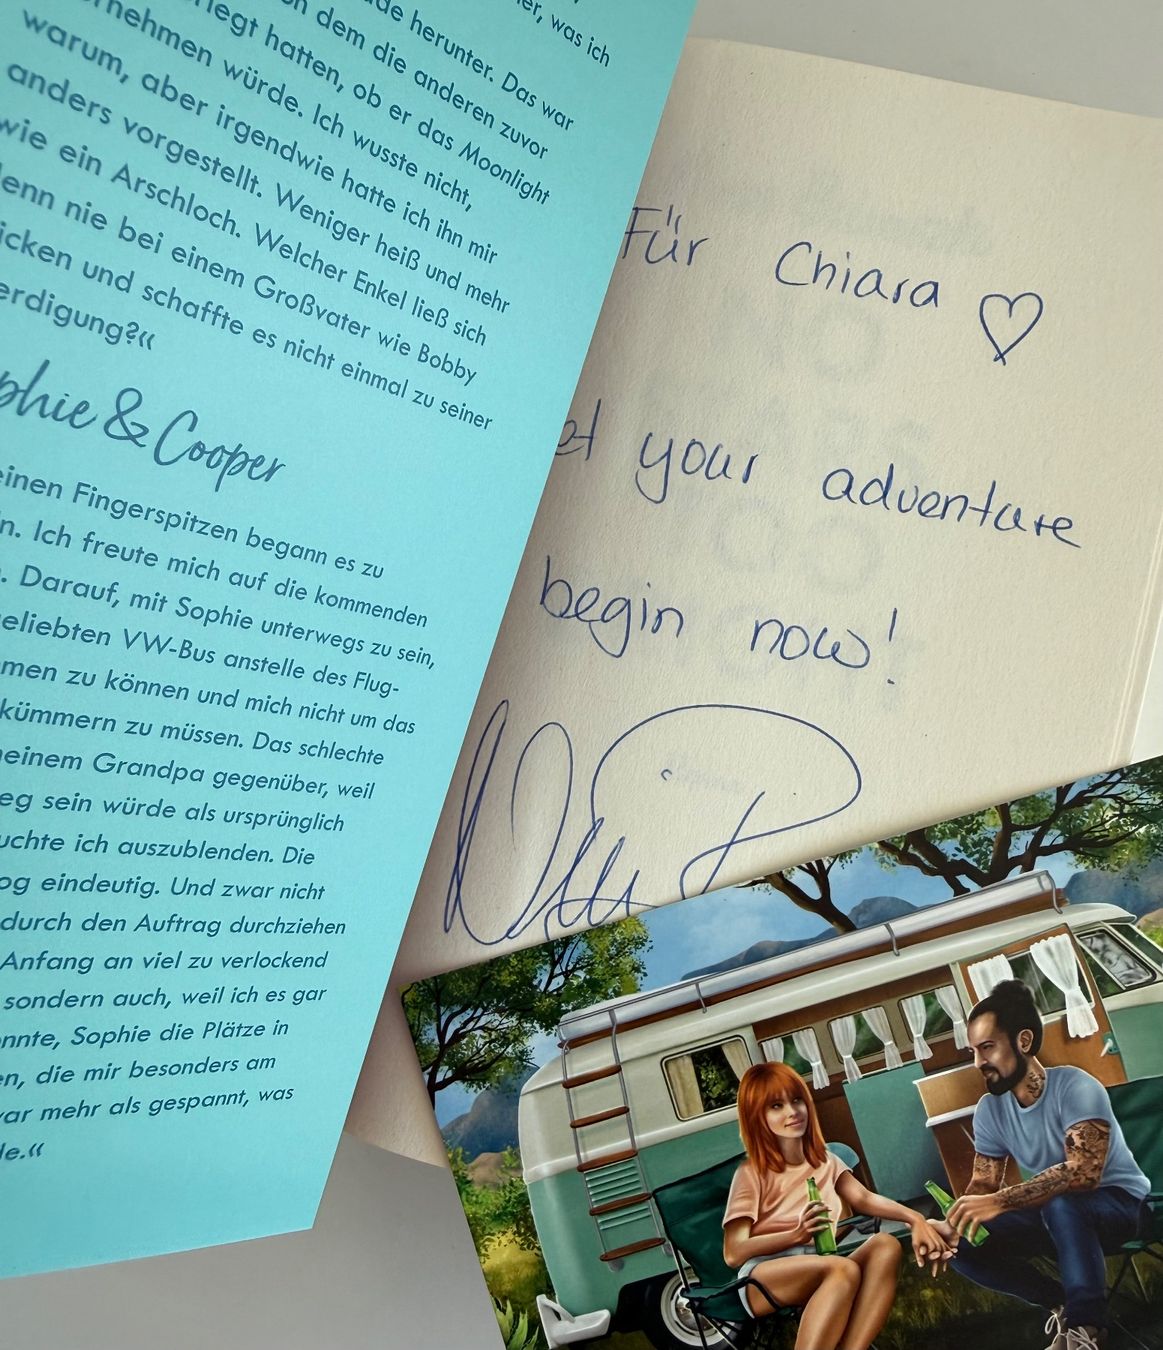 er, was ich
de herunter. Das war
n dem die anderen zuvor
rlegt hatten, ob er das Moonlight
rnehmen würde. Ich wusste nicht,
warum, aber irgendwie hatte ich ihn mir
anders vorgestellt. Weniger heiß und mehr
wie ein Arschloch. Welcher Enkel ließ sich
denn nie bei einem Großvater wie Bobby
icken und schaffte es nicht einmal zu seiner
erdigung?«
phie & Cooper
einen Fingerspitzen begann es zu
n. Ich freute mich auf die kommenden
. Darauf, mit Sophie unterwegs zu sein,
eliebten VW-Bus anstelle des Flug-
men zu können und mich nicht um das
kümmern zu müssen. Das schlechte
meinem Grandpa gegenüber, weil
eg sein würde als ursprünglich
uchte ich auszublenden. Die
og eindeutig. Und zwar nicht
durch den Auftrag durchziehen
Anfang an viel zu verlockend
sondern auch, weil ich es gar
onnte, Sophie die Plätze in
en, die mir besonders am
war mehr als gespannt, was
de.«
Für Chiara ♡
et your adventure
begin now!